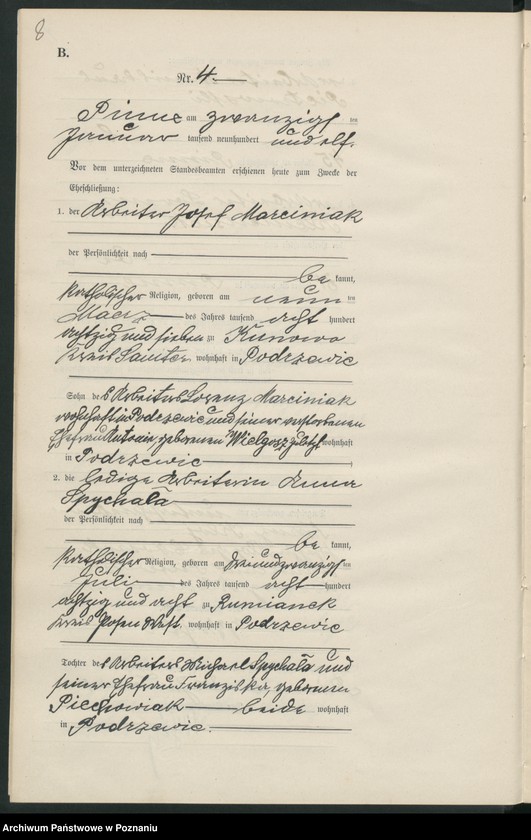 8
B.
Nr. 4.
Pinne am zwanzigsten
Januar tausend neunhundert und elf.
Vor dem unterzeichneten Standesbeamten erschienen heute zum Zwecke der
Eheschließung:
1. der Arbeiter Josef Marciniak
der Persönlichkeit nach
be kannt,
katholischer Religion, geboren am neun ten
März des Jahres tausend acht hundert
achtzig und sieben zu Kunowo
Kreis Samter, wohnhaft in Podrzewie
Sohn des Arbeiters Lorenz Marciniak
wohnhaft in Podrzewie und seiner verstorbenen
Ehefrau Antonie, geborenen Wielgosz zuletzt wohnhaft
in Podrzewie
2. die ledige Arbeiterin Anna
Spychala
der Persönlichkeit nach
be kannt,
katholischer Religion, geboren am dreiundzwanzigsten
Juli des Jahres tausend acht hundert
achtzig und acht zu Rumianek
Kreis Posen West, wohnhaft in Podrzewie
Tochter des Arbeiters Michael Spychala und
seiner Ehefrau Franziska, geborenen
Piechowiak beide wohnhaft
in Podrzewie.
Archiwum Państwowe w Poznaniu